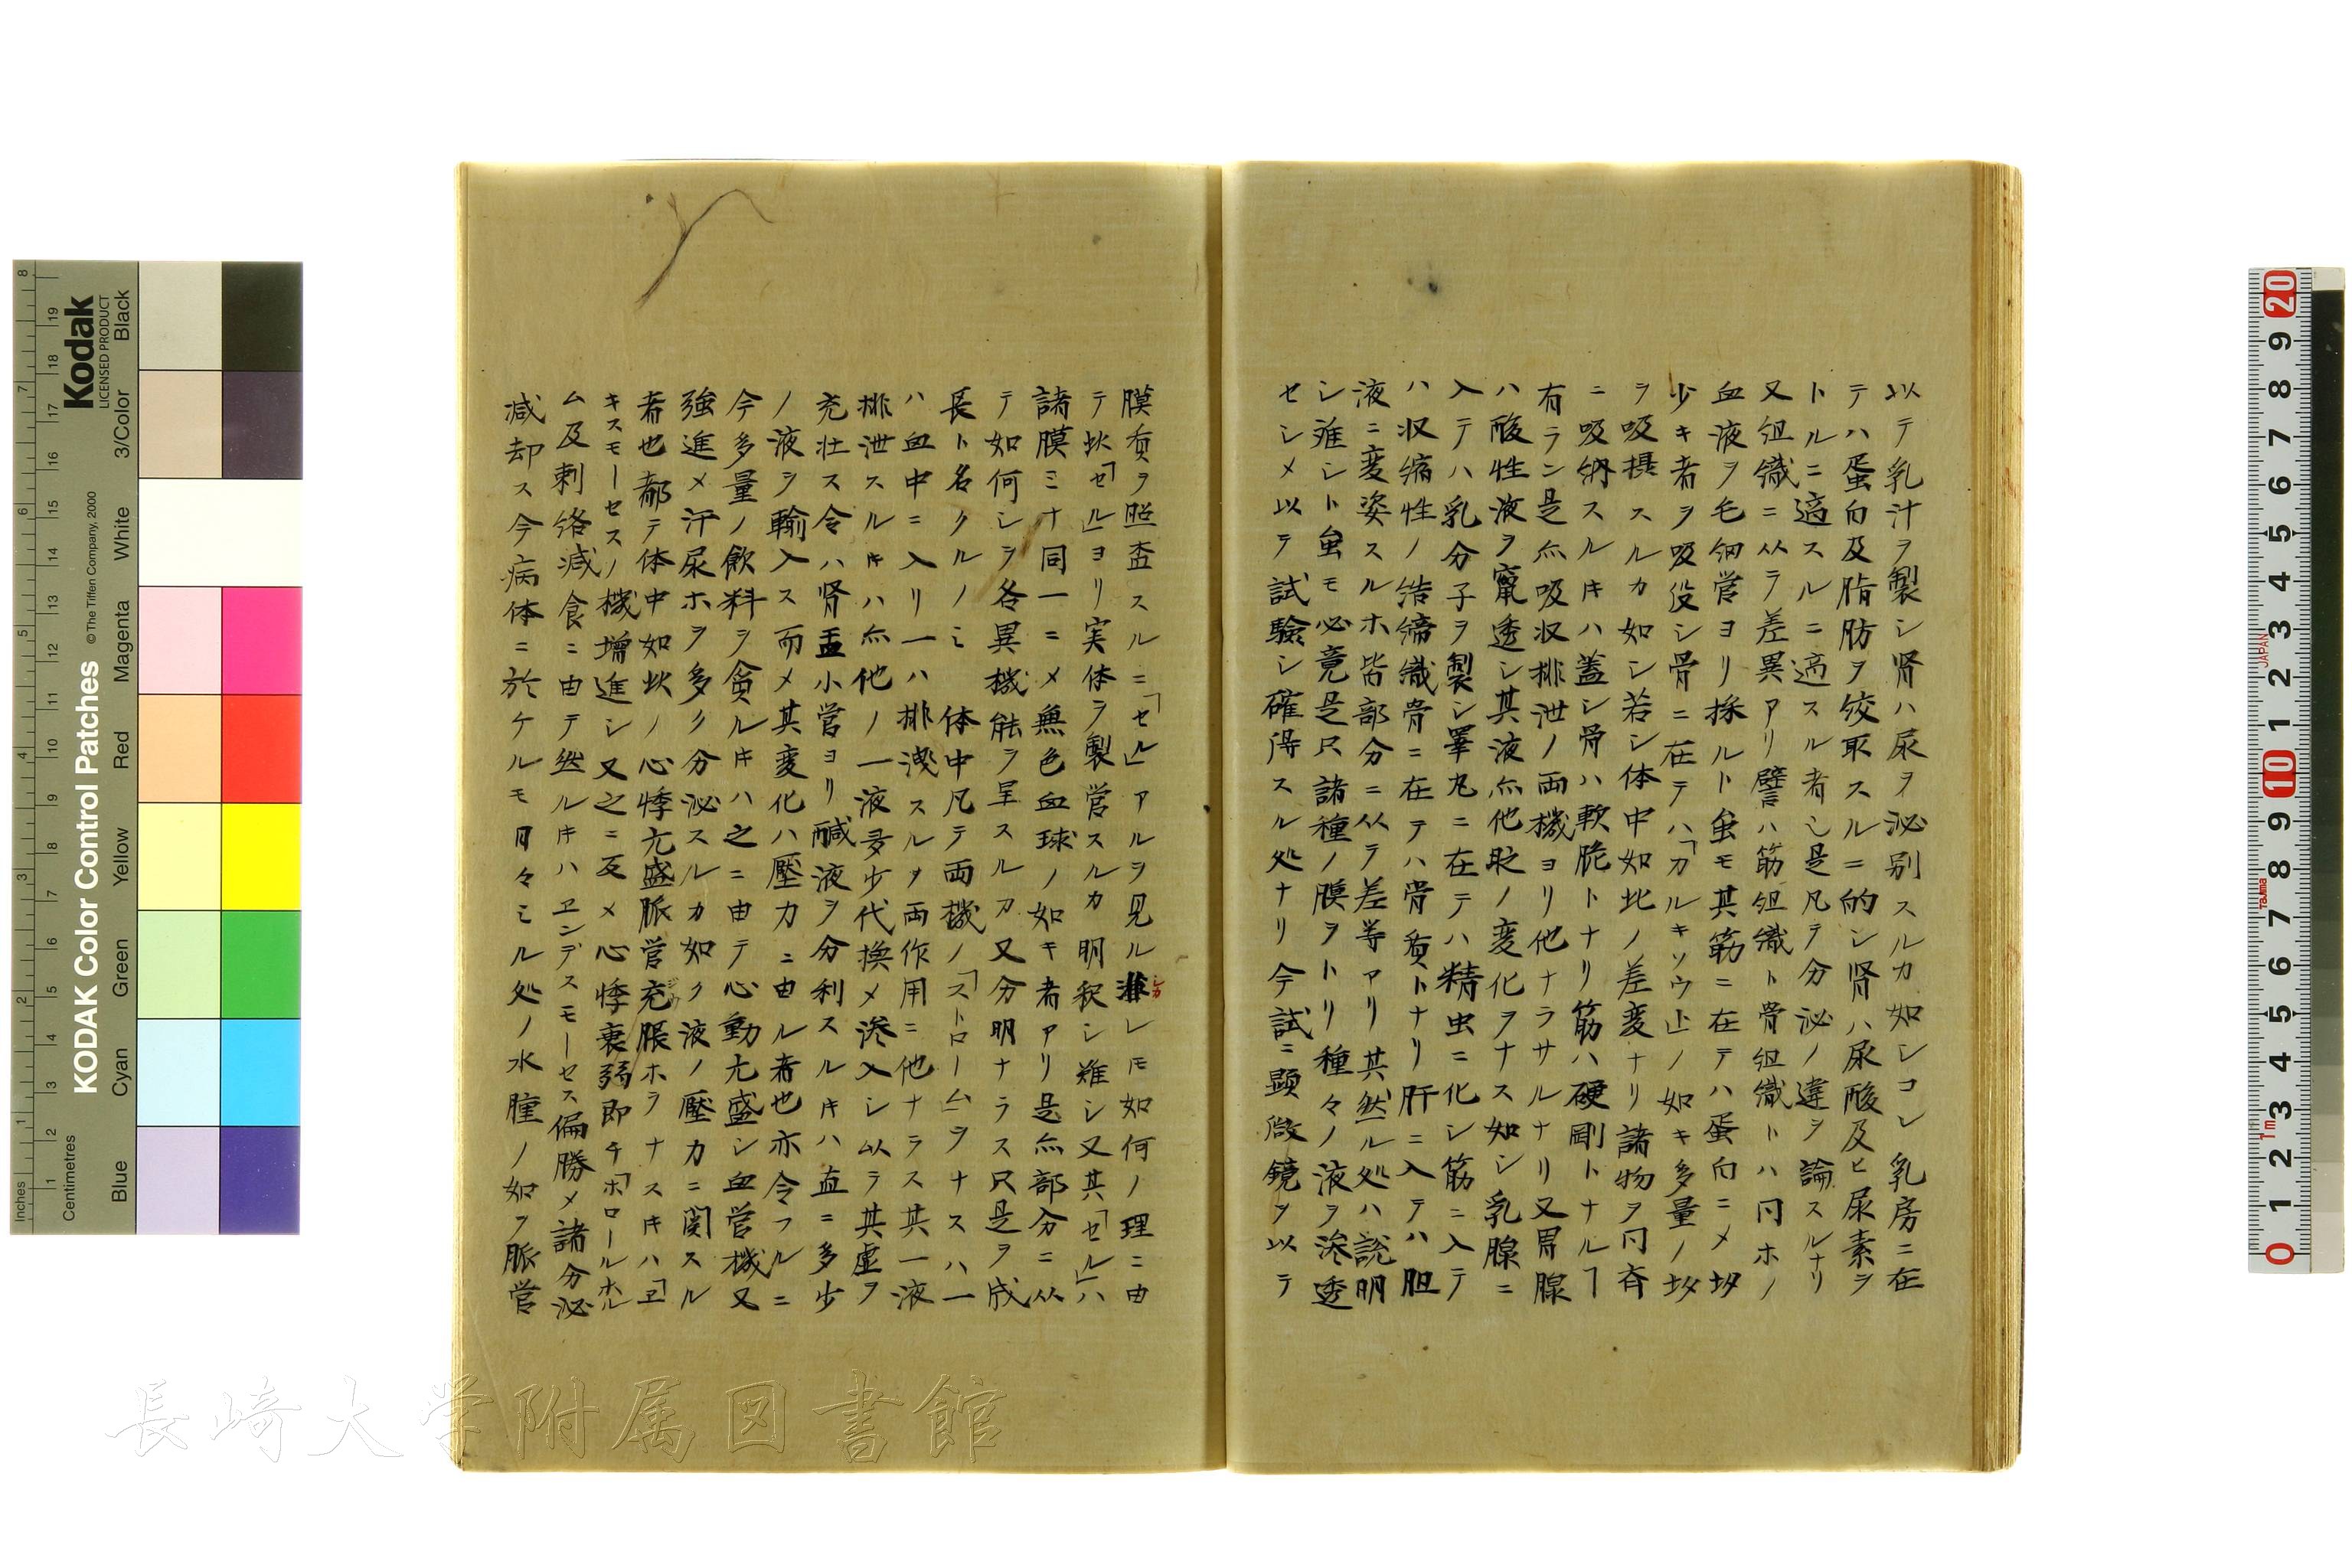 以テ乳汁ヲ製シ肾ハ尿ヲ泌别スルカ如シコレ乳房ニ在
テハ蛋白及脂肪ヲ绞取スルニ的シ肾ハ尿酸及ヒ尿素ヲ
トルニ適スルニ适スル者也是凡テ分泌ノ違ヲ論スルナリ
又组織ニ从テ差異アリ譬ハ筋组織ト骨组織トハ同ホノ
血液ヲ毛细管ヨリ採ルト虽モ其筋ニ在テハ蛋白ニメ
少キ者ヲ吸役シ骨ニ在テハ「カルキソウ上ノ如キ多量ノ
ヲ吸摂スルカ如シ若シ体中如此ノ差变ナリ諸物ヲ同斉
ニ吸納スルキハ蓋シ骨ハ軟脆トナリ筋ハ硬剛トナルヿ
有ラン是亦吸収排泄ノ両機ヨリ他ナラサルナリ又胃腺
ハ酸性液ヲ竄透シ其液亦他ノ变化ヲナス如シ乳腺ニ
入テハ乳分子ヲ製シ睾丸ニ在テハ精虫ニ化シ筋ニ入テ
ハ収縮性ノ结締織骨ニ在テハ骨質トナリ肝ニ入テハ胆
液ニ变姿スルホ皆部分ニ从テ差等アリ其然ル処ハ説明
シ难シト虽モ必竟是只諸種ノ膜ヲトリ種々ノ液ヲ滲透
セシメ以テ試驗シ確得スル処ナリ今試ニ顕微鏡ヲ以テ
膜質ヲ照査スルニ「セル」アルヲ見ル雖レモ如何ノ理ニ由
テ此「セル」ヨリ実体ヲ製营スルカ明釈シ難シ又其「セル」ハ
諸膜ミナ同一ニメ無色血球ノ如キ者アリ是亦部分ニ从
テ如何シテ各異機能ヲ呈スルカ又分明ナラス只是ヲ成
長ト名クルノミ体中凡テ両機ノ「ストローム」ヲナスハ一
ハ血中ニ入リ一ハ排泄スルヲ両作用ニ他ナラス其一液
排泄スルキハ亦他ノ一液多少代換メ滲入シ以テ其虚ヲ
充壮ス令ハ肾盂小管ヨリ鹹液ヲ分利スルキハ血ニ多少
ノ液ヲ輸入ス而メ其变化ハ壓力ニ由ル者也亦令フルニ
今多量ノ飲料ヲ貪ルキハ之ニ由テ心動亢盛シ血管機又
強進メ汗尿ホヲ多ク分泌スルカ如ク液ノ壓力ニ関スル
者也都テ体中如此ノ心悸亢盛脈管充脹ホヲナスキハ「ヱ
キスモーセスノ機增進シ又之ニ反メ心悸衰弱即チ「ホロールホル
ム及刺络減食ニ由テ然ルキハヱンデスモーセス偏勝メ諸分泌
減却ス今病体ニ於ケルモ日々ミル処ノ水腫ノ如ク脈管
Kodak
LICENSED PRODUCT
KODAK Color Control Patches
© The Tiffen Company, 2000
Inches
Centimetres
Blue
Cyan
Green
Yellow
Red
Magenta
White
3/Color
Black
JAPAN
TaJima
長崎大学附属図書館